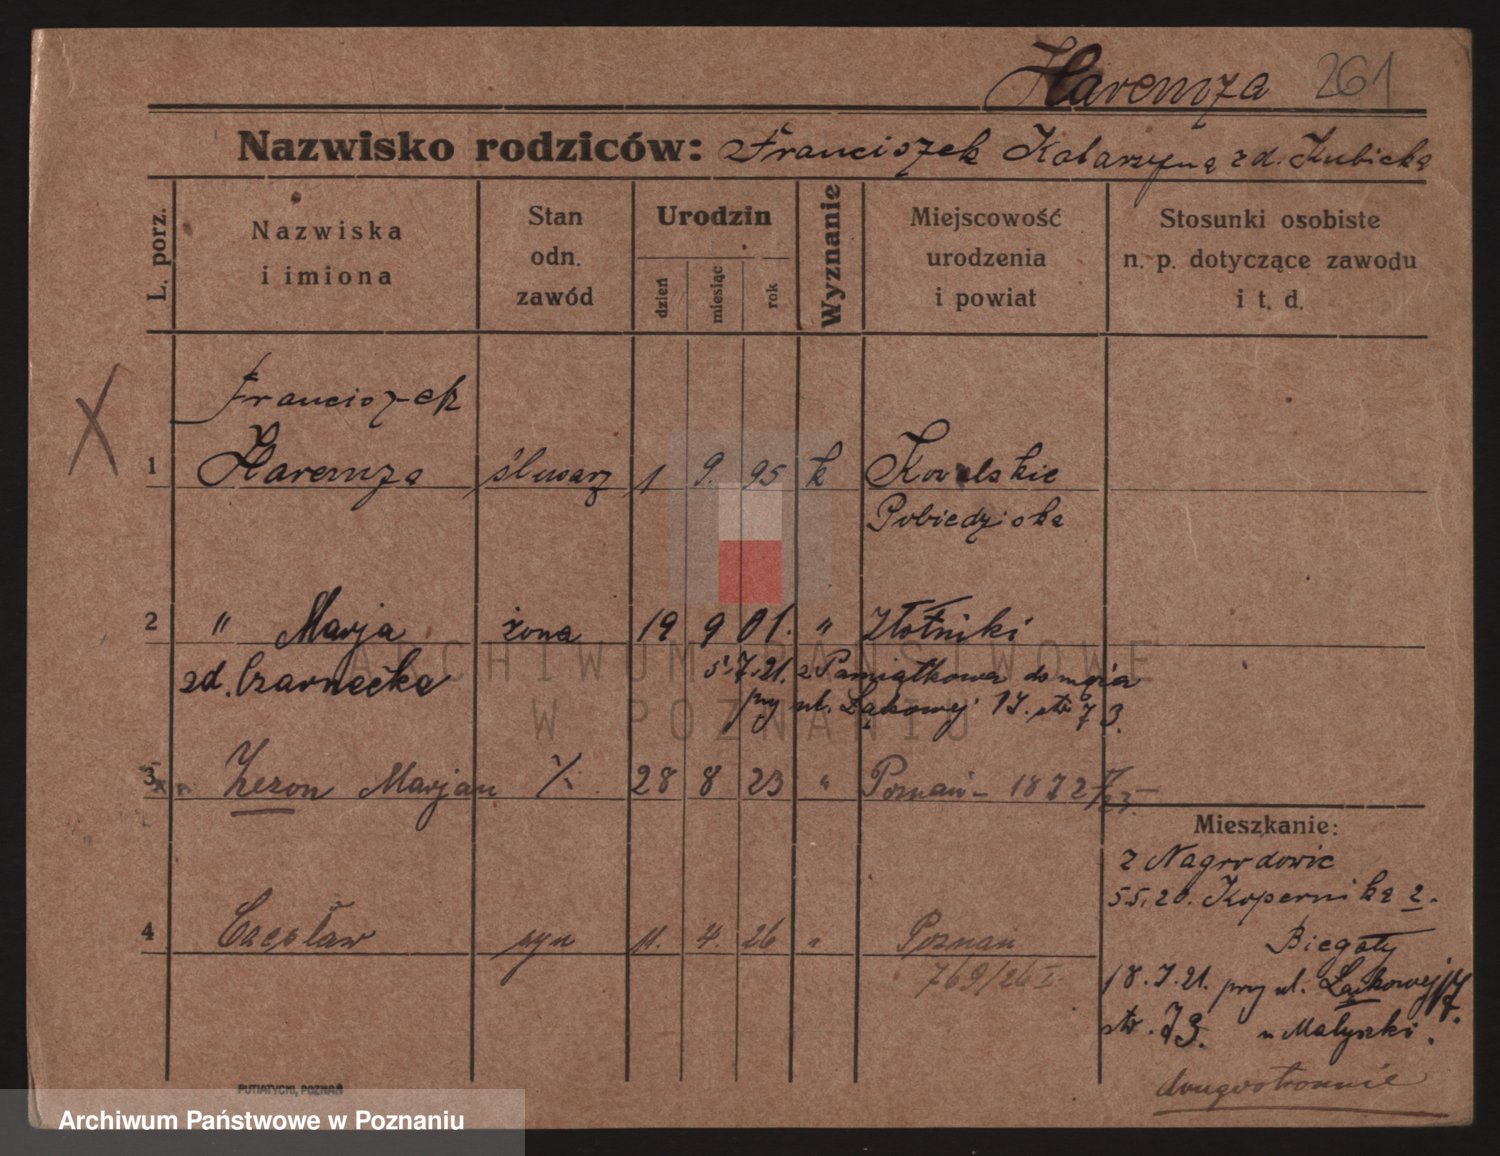 Haremza 261
Nazwisko rodziców: Franciszek Katarzyna zd. Kubicka
L. porz.
Nazwiska
i imiona
Stan
odn.
zawód
Urodzin
dzień
miesiąc
rok
Wyznanie
Miejscowość
urodzenia
i powiat
Stosunki osobiste
n. p. dotyczące zawodu
i t. d.
X
Franciszek
1 Haremza ślusarz 1 9. 95 k Kowalskie
Pobiedziska
2 " Marja żona 19 9 01. " Złotniki
zd. Czarnecka 5.7.21. z Pamiątkowa do męża
przy ul. Łąkowej 17. str 73.
3 Zezon Marjan 28 8 23 " Poznań - 1872
4 Czesław syn 11. 4. 26 " Poznań
769/26 I.
Mieszkanie:
z Nagradowic
5.5.20. Kopernika 2.
Biegały
18.7.21. przy ul. Łąkowej 17.
str. 73. u Małyszki.
drugostronnie
PUTIATYCKI, POZNAŃ
ARCHIWUM PAŃSTWOWE
W POZNANIU
Archiwum Państwowe w Poznaniu